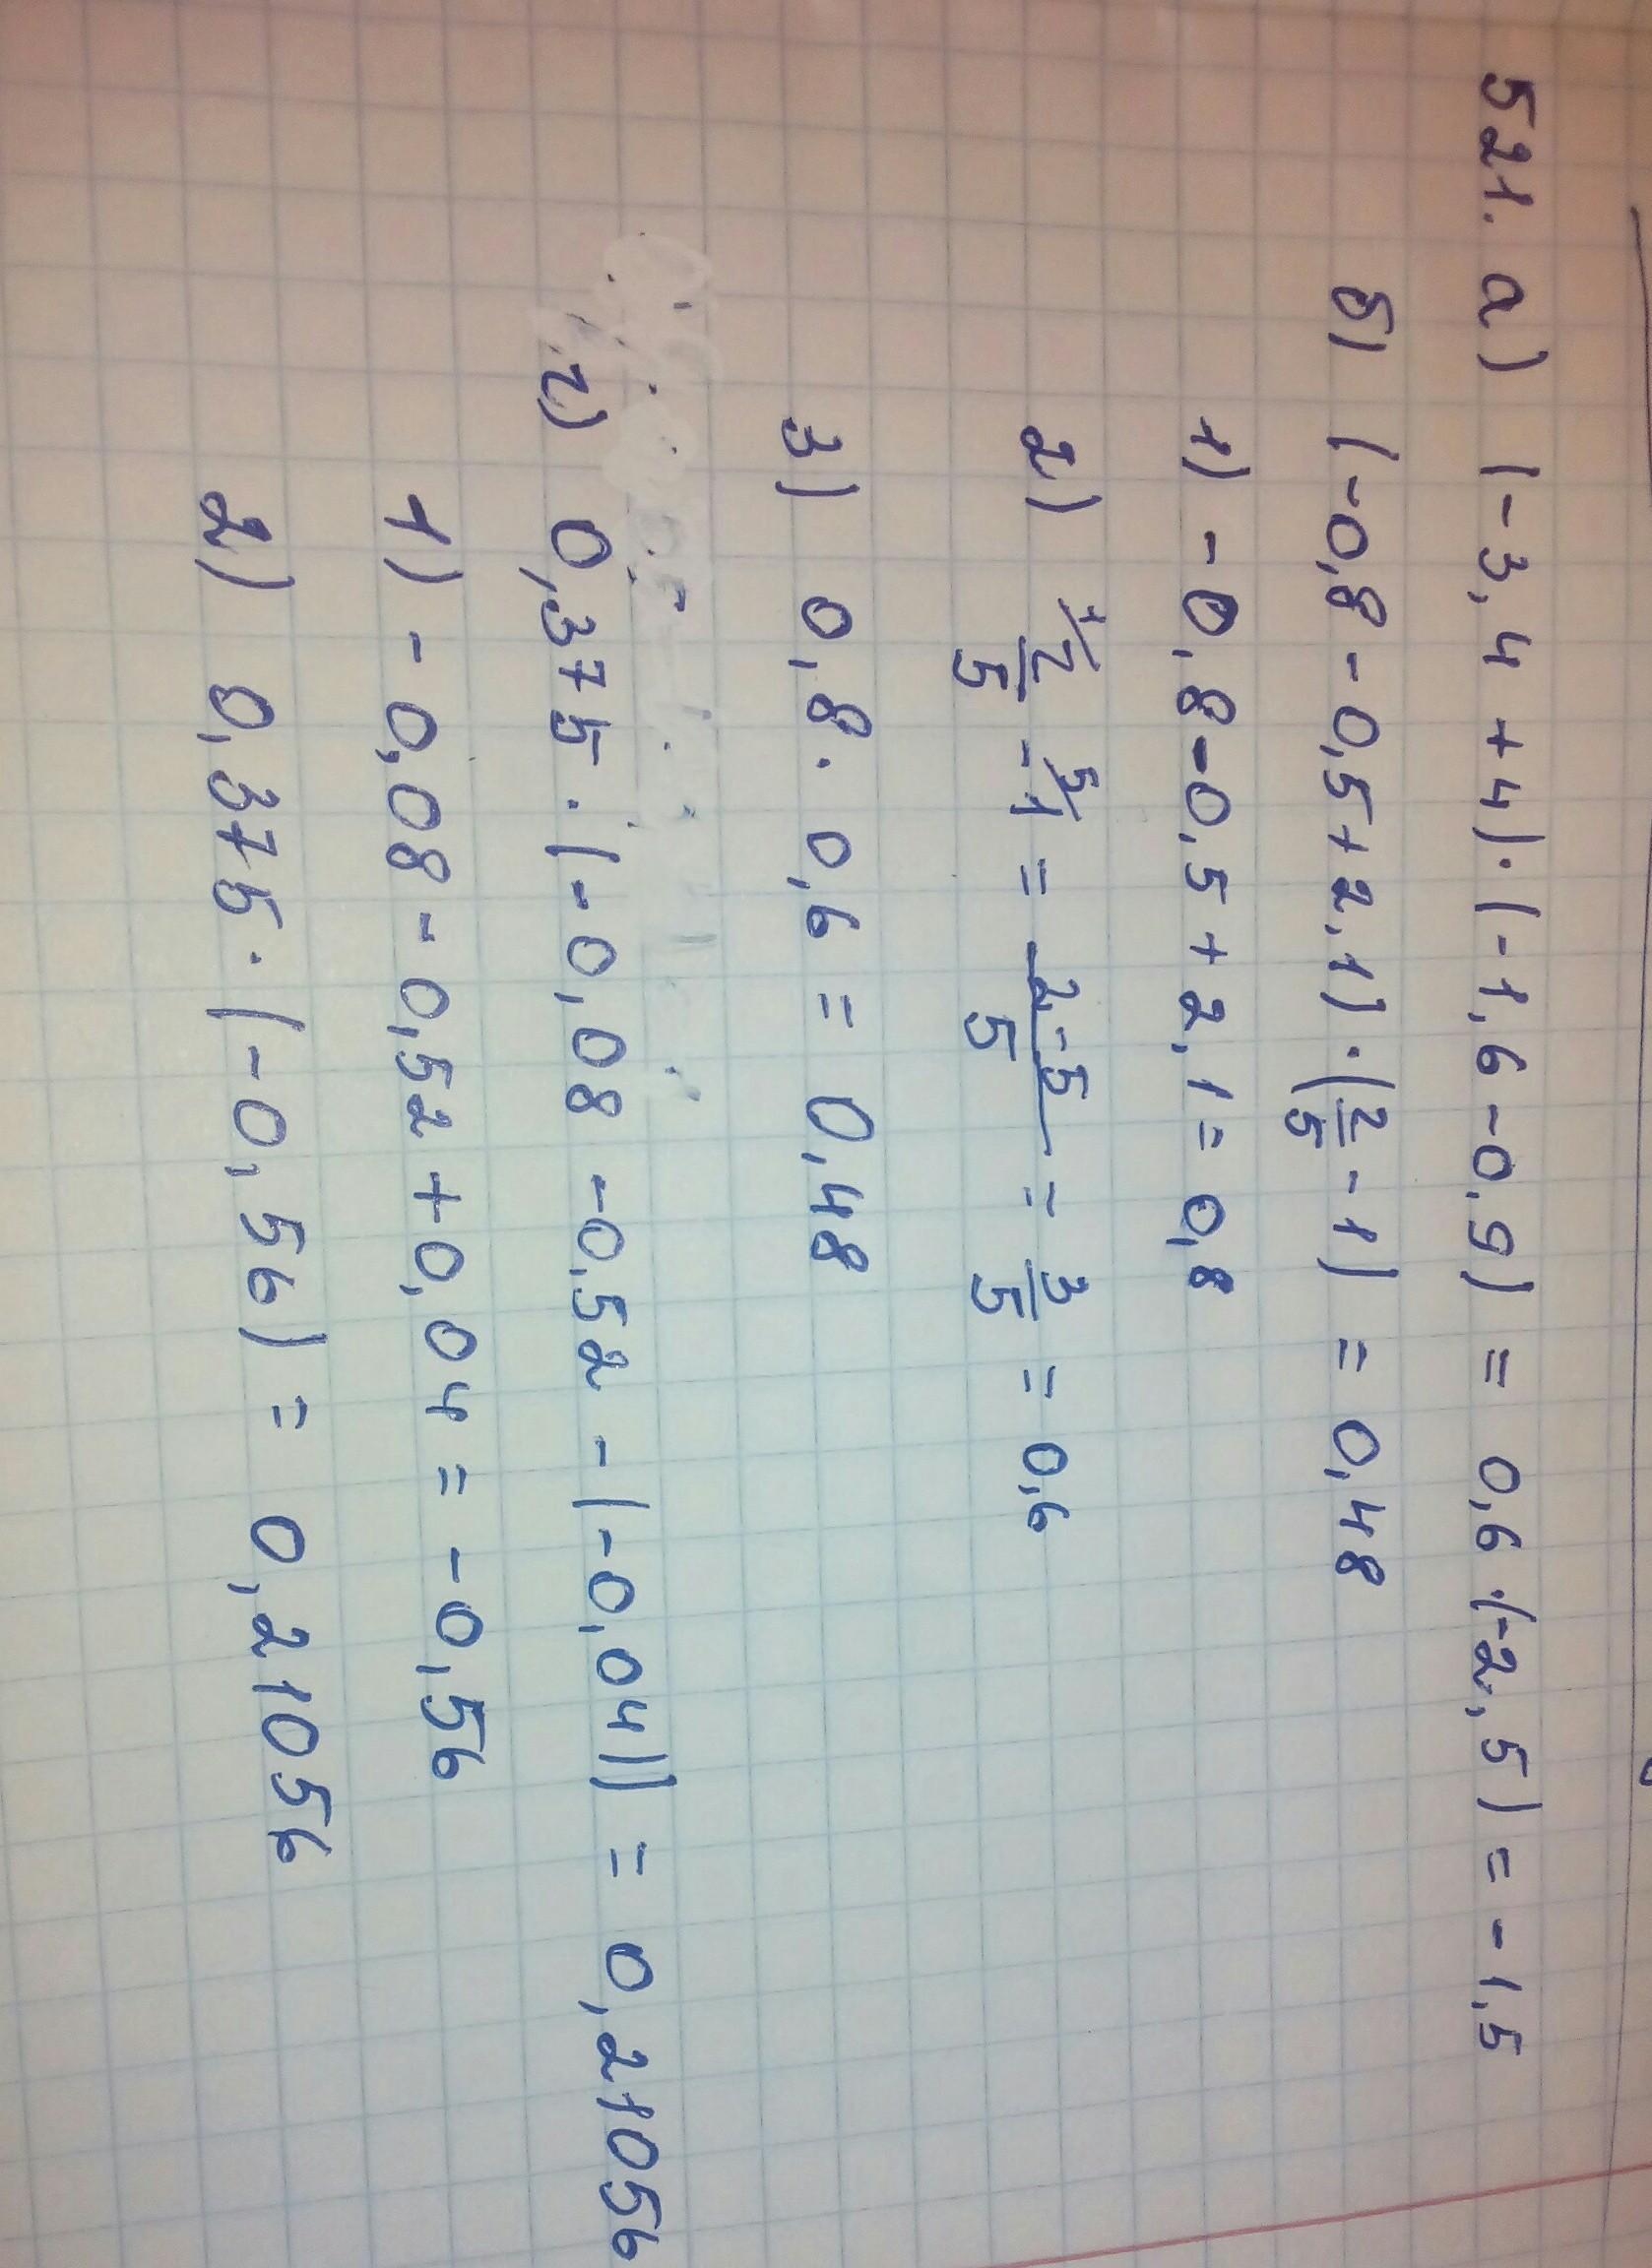 521. а) (-3,4 + 4)·(-1,6 -0,9) = 0,6·(-2,5) = -1,5
б) (-0,8 - 0,5 + 2,1)·(2/5 - 1) = 0,48
1) -0,8-0,5 + 2,1 = 0,8
2) 1/2/5 - 5/1 = 2-5/5 = 3/5 = 0,6
3) 0,8 · 0,6 = 0,48
г) 0,375 · (-0,08 -0,52 - (-0,04)) = 0,21056
1) -0,08 - 0,52 + 0,04 = -0,56
2) 0,375 · (-0,56) = 0,21056